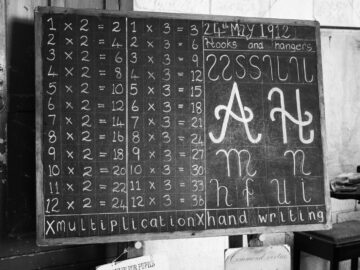 1 × 2 = 2
2 × 2 = 4
3 × 2 = 6
4 × 2 = 8
5 × 2 = 10
6 × 2 = 12
7 × 2 = 14
8 × 2 = 16
9 × 2 = 18
10 × 2 = 20
11 × 2 = 22
12 × 2 = 24
1 × 3 = 3
2 × 3 = 6
3 × 3 = 9
4 × 3 = 12
5 × 3 = 15
6 × 3 = 18
7 × 3 = 21
8 × 3 = 24
9 × 3 = 27
10 × 3 = 30
11 × 3 = 33
12 × 3 = 36
24th May 1912
Hooks and hangers
A H
m n
h f u i
X Multiplication X hand writing
FOR PUPILS